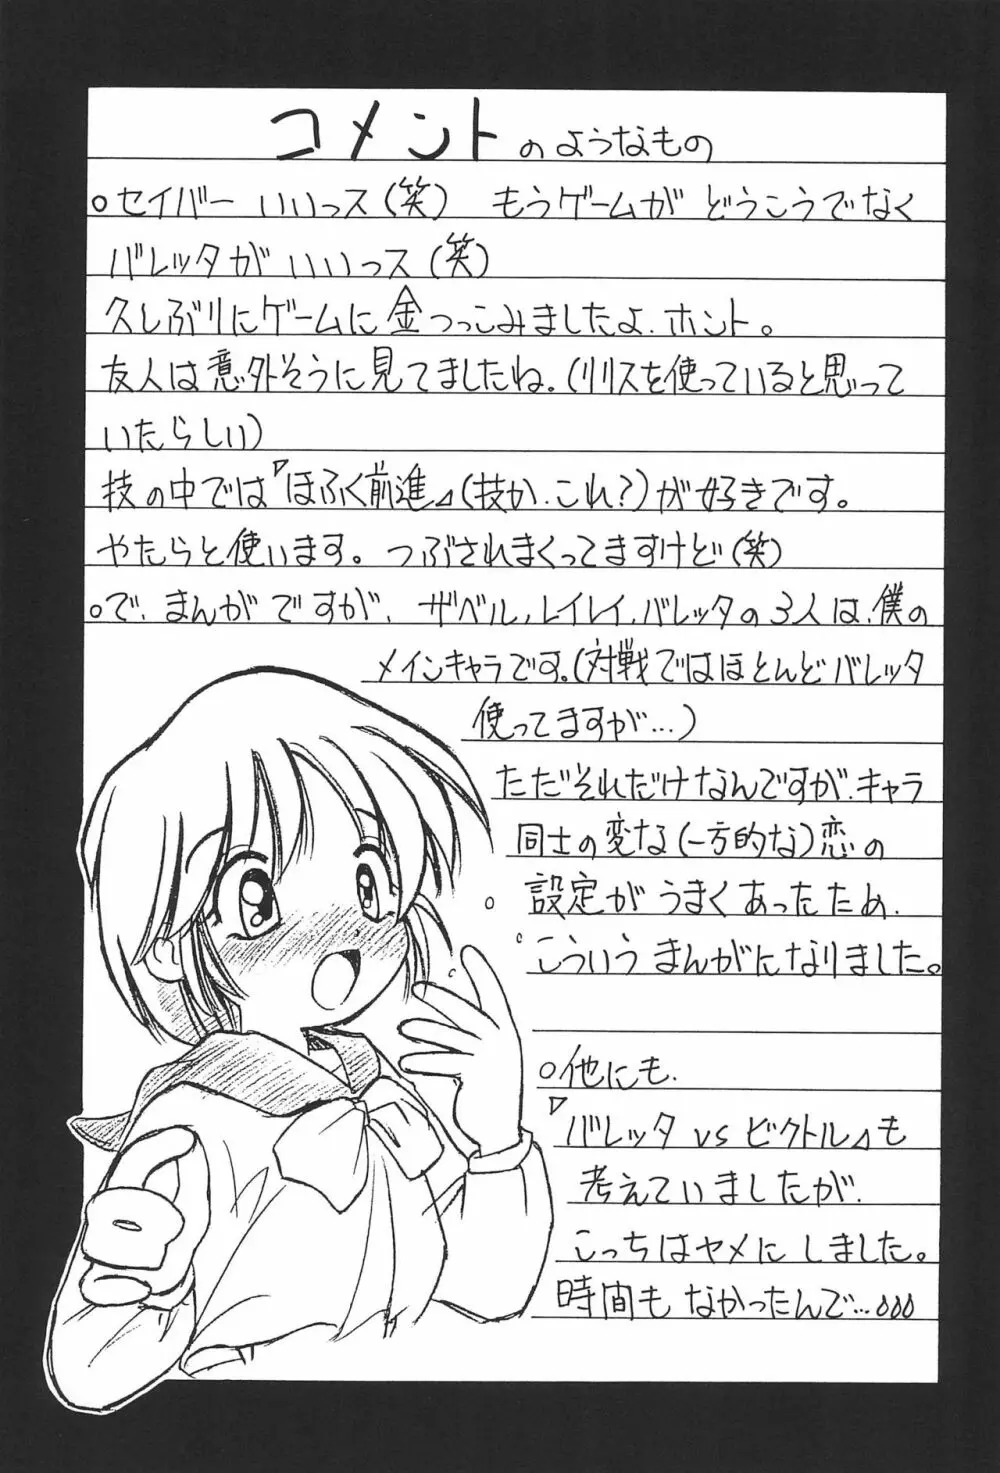 コメントのようなもの
○セイバー いいっス(笑) もうゲームが どうこうでなく
バレッタが いいっス(笑)
久しぶりにゲームに金つっこみましたよ.ホント。
友人は意外そうに見てましたね。(リリスを使っていると思って
いたらしい)
技の中では『ほふく前進』(技か.これ?)が好きです。
やたらと使います。つぶされまくってますけど(笑)
○で、まんがですが、ザベル,レイレイ,バレッタの3人は、僕の
メインキャラです。(対戦ではほとんどバレッタ
使ってますが…)
ただそれだけなんですが、キャラ
同士の変な(一方的な)恋の
設定が うまくあったため、
こういう まんがになりました。
○他にも、
『バレッタ vs ビクトル』も
考えていましたが、
こっちはヤメに しました。
時間も なかったんで…